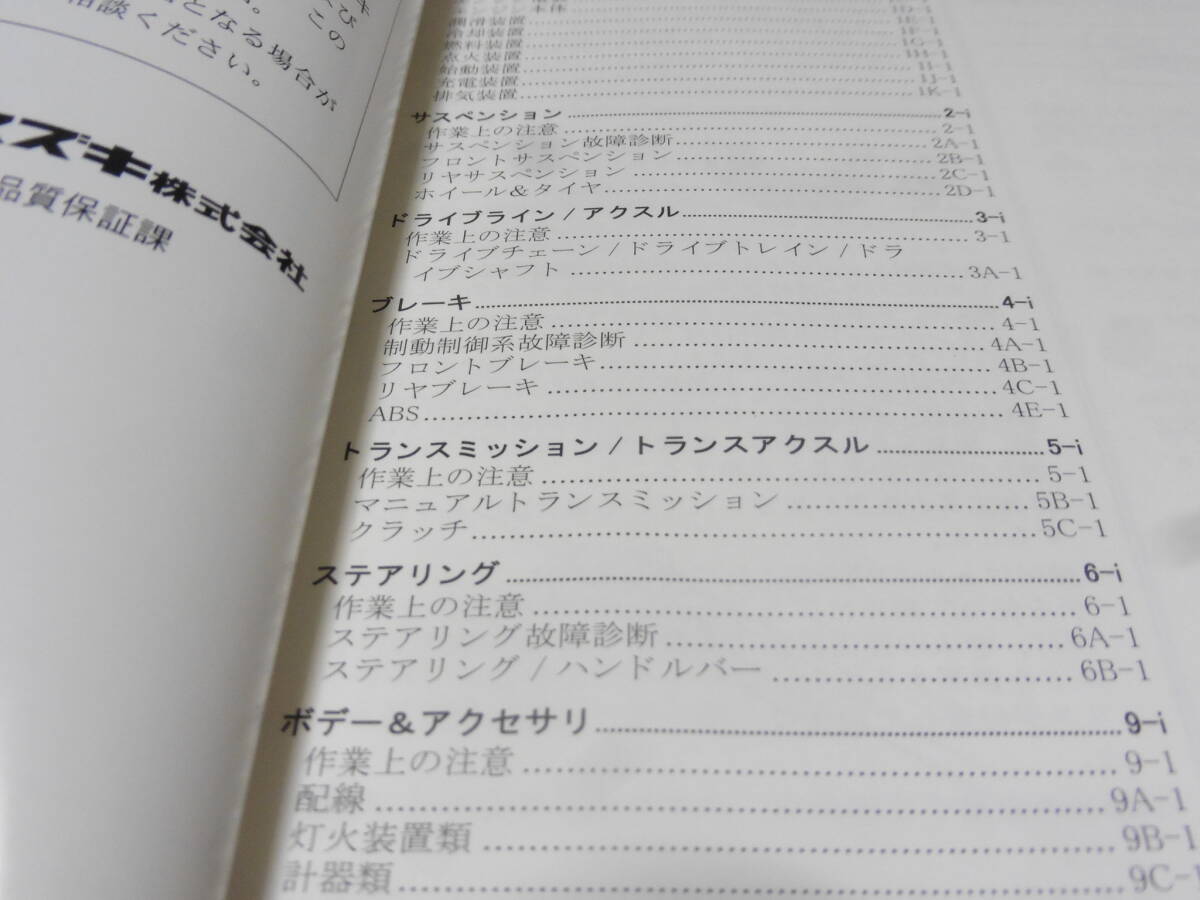 となる場合が
相談ください。
スズキ株式会社
品質保証課
潤滑装置 1E-1
冷却装置 1F-1
燃料装置 1G-1
点火装置 1H-1
始動装置 1I-1
充電装置 1J-1
排気装置 1K-1
サスペンション 2-i
作業上の注意 2-1
サスペンション故障診断 2A-1
フロントサスペンション 2B-1
リヤサスペンション 2C-1
ホイール&タイヤ 2D-1
ドライブライン/アクスル 3-i
作業上の注意 3-1
ドライブチェーン/ドライブトレイン/ドラ
イブシャフト 3A-1
ブレーキ 4-i
作業上の注意 4-1
制動制御系故障診断 4A-1
フロントブレーキ 4B-1
リヤブレーキ 4C-1
ABS 4E-1
トランスミッション/トランスアクスル 5-i
作業上の注意 5-1
マニュアルトランスミッション 5B-1
クラッチ 5C-1
ステアリング 6-i
作業上の注意 6-1
ステアリング故障診断 6A-1
ステアリング/ハンドルバー 6B-1
ボデー&アクセサリ 9-i
作業上の注意 9-1
配線 9A-1
灯火装置類 9B-1
計器類 9C-1